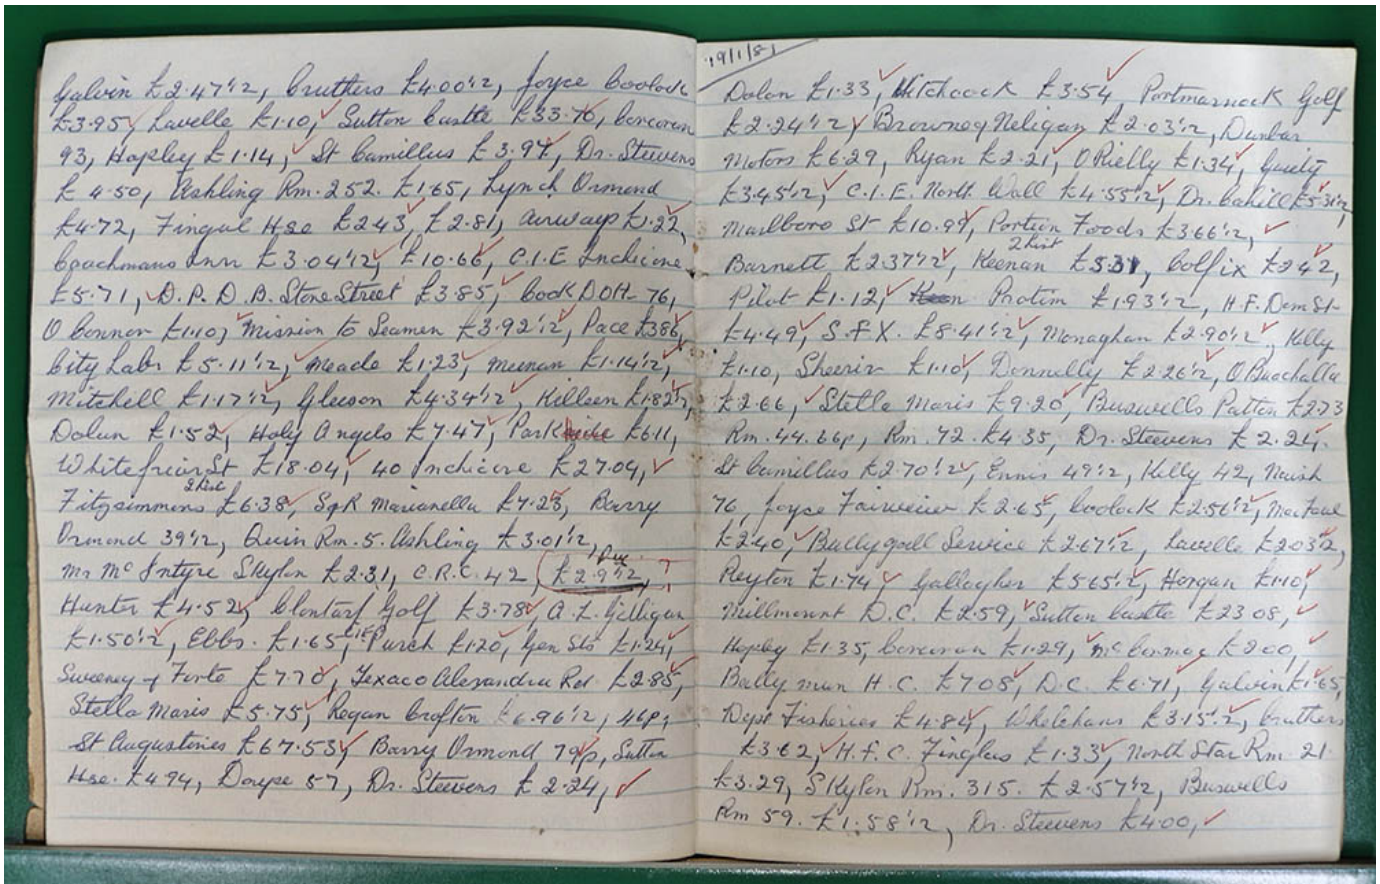 Galvin £2.47½, Cruthers £4.00½, Joyce Coolock
£3.95, Lavelle £1.10, Sutton Castle £33.76, Corcoran
93, Hopley £1.14, St Camillus £3.97, Dr. Steevens
£4.50, Ashling Rm. 252. £1.65, Lynch Ormond
£4.72, Fingal Hse £2.43, £2.81, Airways £1.22,
Coachmans Inn £3.04½, £10.66, C.I.E Inchicore
£5.71, D.P. D.B. Store Street £3.85, Cook DOH 76,
O Connor £1.10, Mission to Seamen £3.92½, Pace £3.86,
City Labs £5.11½, Meade £1.23, Meenan £1.14½,
Mitchell £1.17½, Gleeson £4.34½, Killeen £1.82½,
Dolan £1.52, Holy Angels £7.47, Park £6.11,
Whitefriar St £18.04, 40 Inchicore £27.04,
2 List
Fitzsimmons £6.38, Marianella £7.23, Barry
Ormond 39½, Quin Rm. 5. Ashling £3.01½,
Mr Mc Intyre Skylon £2.31, C.R.C. 42, £2.9½
Hunter £4.52, Clontarf Golf £3.78, A.L. Gilligan
£1.50½, Ebbs. £1.65, CIE Purch £1.20, Gen Sts £1.24,
Sweeney + Forte £7.70, Texaco Alexandra Rd. £2.85,
Stella Maris £5.75, Regan Crofton £6.96½, 46p,
St Augustines £67.53, Barry Ormond 79p, Sutton
Hse. £4.94, Doupe 57, Dr. Steevens £2.24,
19/1/81
Dolan £1.33, Hitchcock £3.54, Portmarnock Golf
£2.24½, Browne Neligan £2.03½, Dunbar
Motors £6.29, Ryan £2.21, O Rielly £1.34, Guilty
£3.45½, C.I.E. North Wall £4.55½, Dr. Cahill £5.31½,
Marlboro St £10.99, Portion Foods £3.66½,
2 List
Barnett £2.37½, Keenan £5.31, Colfix £2.42,
Pilot £1.12, Protim £1.93½, H.F. Dom St.
£4.49, S.F.X. £8.41½, Monaghan £2.90½, Kelly
£1.10, Sheerin £1.10, Donnelly £2.26½, O Buachalla
£2.66, Stella Maris £9.20, Buswells Patton £2.73
Rm. 44. 66p, Rm. 72. £4.35, Dr. Steevens £2.24.
St Camillus £2.70½, Ennis 49½, Kelly 42, Naish
76, Joyce Fairview £2.65, Coolock £2.56½,
£2.40, Ballygall Service £2.67½, Lavelle £2.03½,
Peyton £1.74, Gallagher £5.65½, Horgan £1.10,
Millmount D.C. £2.59, Sutton Castle £23.08,
Hopley £1.35, Corcoran £1.29, Mc Cormac £2.00,
Bally mun H.C. £7.05, D.C. £6.71, Galvin £1.65,
Dept Fisheries £4.84, Whelehans £3.15½, Cruthers
£3.62, H.F.C. Finglas £1.33, North Star Rm. 21
£3.29, Skylon Rm. 315. £2.57½, Buswells
Rm 59. £1.58½, Dr. Steevens £4.00,